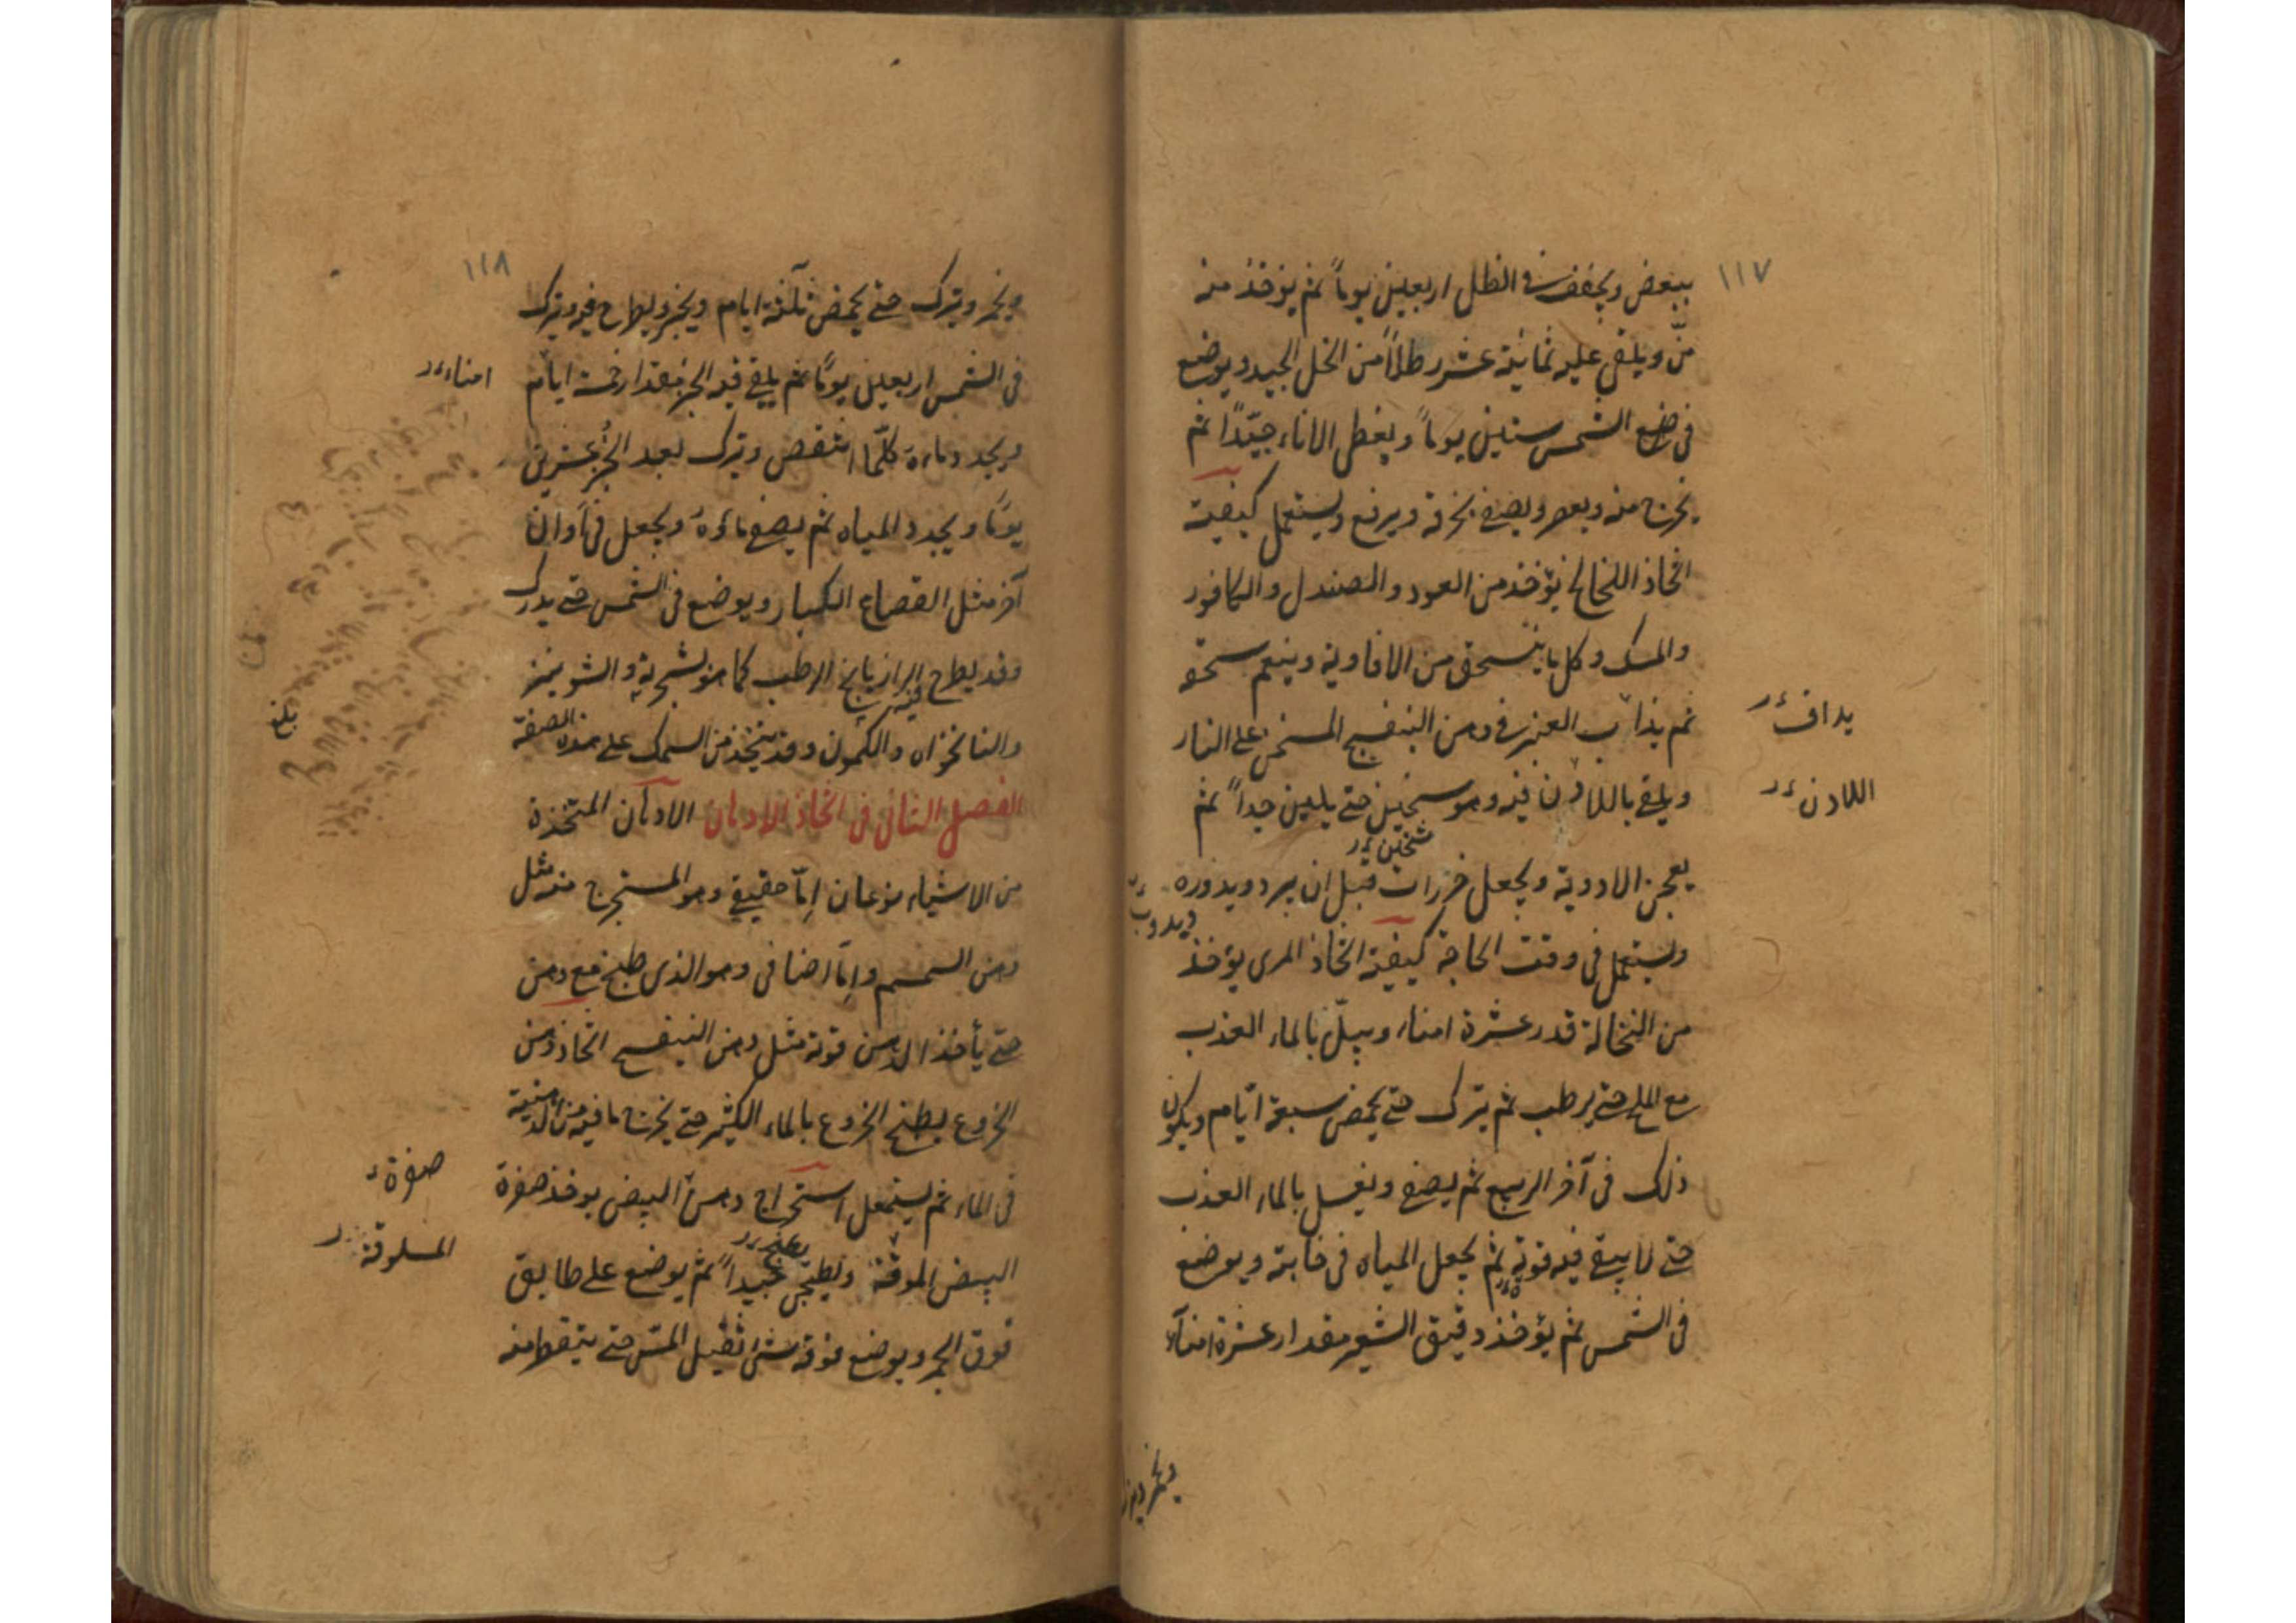 ١١٧
ببعض ويجفف في الظل اربعين يوماً ثم يؤخذ منه
منّ ويلقى عليه ثمانية عشر رطلاً من الخل الجيد ويوضع
في الشمس ستين يوماً ويغطى الاناء جيّداً ثم
يخرج منه ويعصر ويصفى بخرقة ويرفع ويستعمل كيفية
اتخاذ اللخالخ يؤخذ من العود والصندل والكافور
والمسك وكل ما ينسحق من الافاوية وينعم سحقه
ثم يذاب العنبر في دهن البنفسج المسخن على النار
يداف
ويلقى باللاذن فيه وهو سخين حتى يلين جداً ثم
اللادن
سخين
يعجن الادوية ويجعل خرزات قبل ان يبرد ويدوره
ويستعمل في وقت الحاجة كيفية اتخاذ المرى يؤخذ
من النخالة قدر عشرة امناء ويبلّ بالماء العذب
مع الملح حتى يرطب ثم يترك حتى يحمض سبعة ايّام ويكون
ذلك في آخر الربيع ثم يصفى ويغسل بالماء العذب
حتى لا يبقى فيه قوته ثم يجعل المياه في خابية ويوضع
في الشمس ثم يؤخذ دقيق الشعير مقدار عشرة امناء
ويخمر ويترك
١١٨
ويخمر ويترك حتى يحمض ثلثة ايام ويخبز ويطرح فيه ويترك
في الشمس اربعين يوماً ثم يلقى فيه الخبز بمقدار خمسة ايام
امناء
ويجدد ماءه كلّما انتقص ويترك بعد الخبز عشرين
يوماً ويجدد المياه ثم يصفى ماؤه ويجعل في اوانٍ
آخر مثل القصاع الكبار ويوضع في الشمس حتى يدرك
وقد يطرح فيه الرازيانج الرطب كما هو بشجرته والشونيز
والنانخواه والكمون وقد يتخذ من السمك على هذه الصفة
بلغ
الفصل الثاني في اتخاذ الادهان الادهان المتخذة
من الاشياء نوعان إمّا حقيقي وهو المستخرج منه مثل
دهن السمسم وإمّا اضافي وهو الذي طبخ مع دهن
حتى يأخذ الدهن قوته مثل دهن البنفسج اتخاذ دهن
الخروع يطبخ الخروع بالماء الكثير حتى يخرج ما فيه من الدهنية
في الماء ثم يستعمل استخراج دهن البيض يوخذ صفرة
صفرة
البيض الموقة ويطجن جيداً ثم يوضع على طابق
المسلوقة
فوق الجمر ويوضع فوقه شئ ثقيل المسّ حتى يتقطر منه